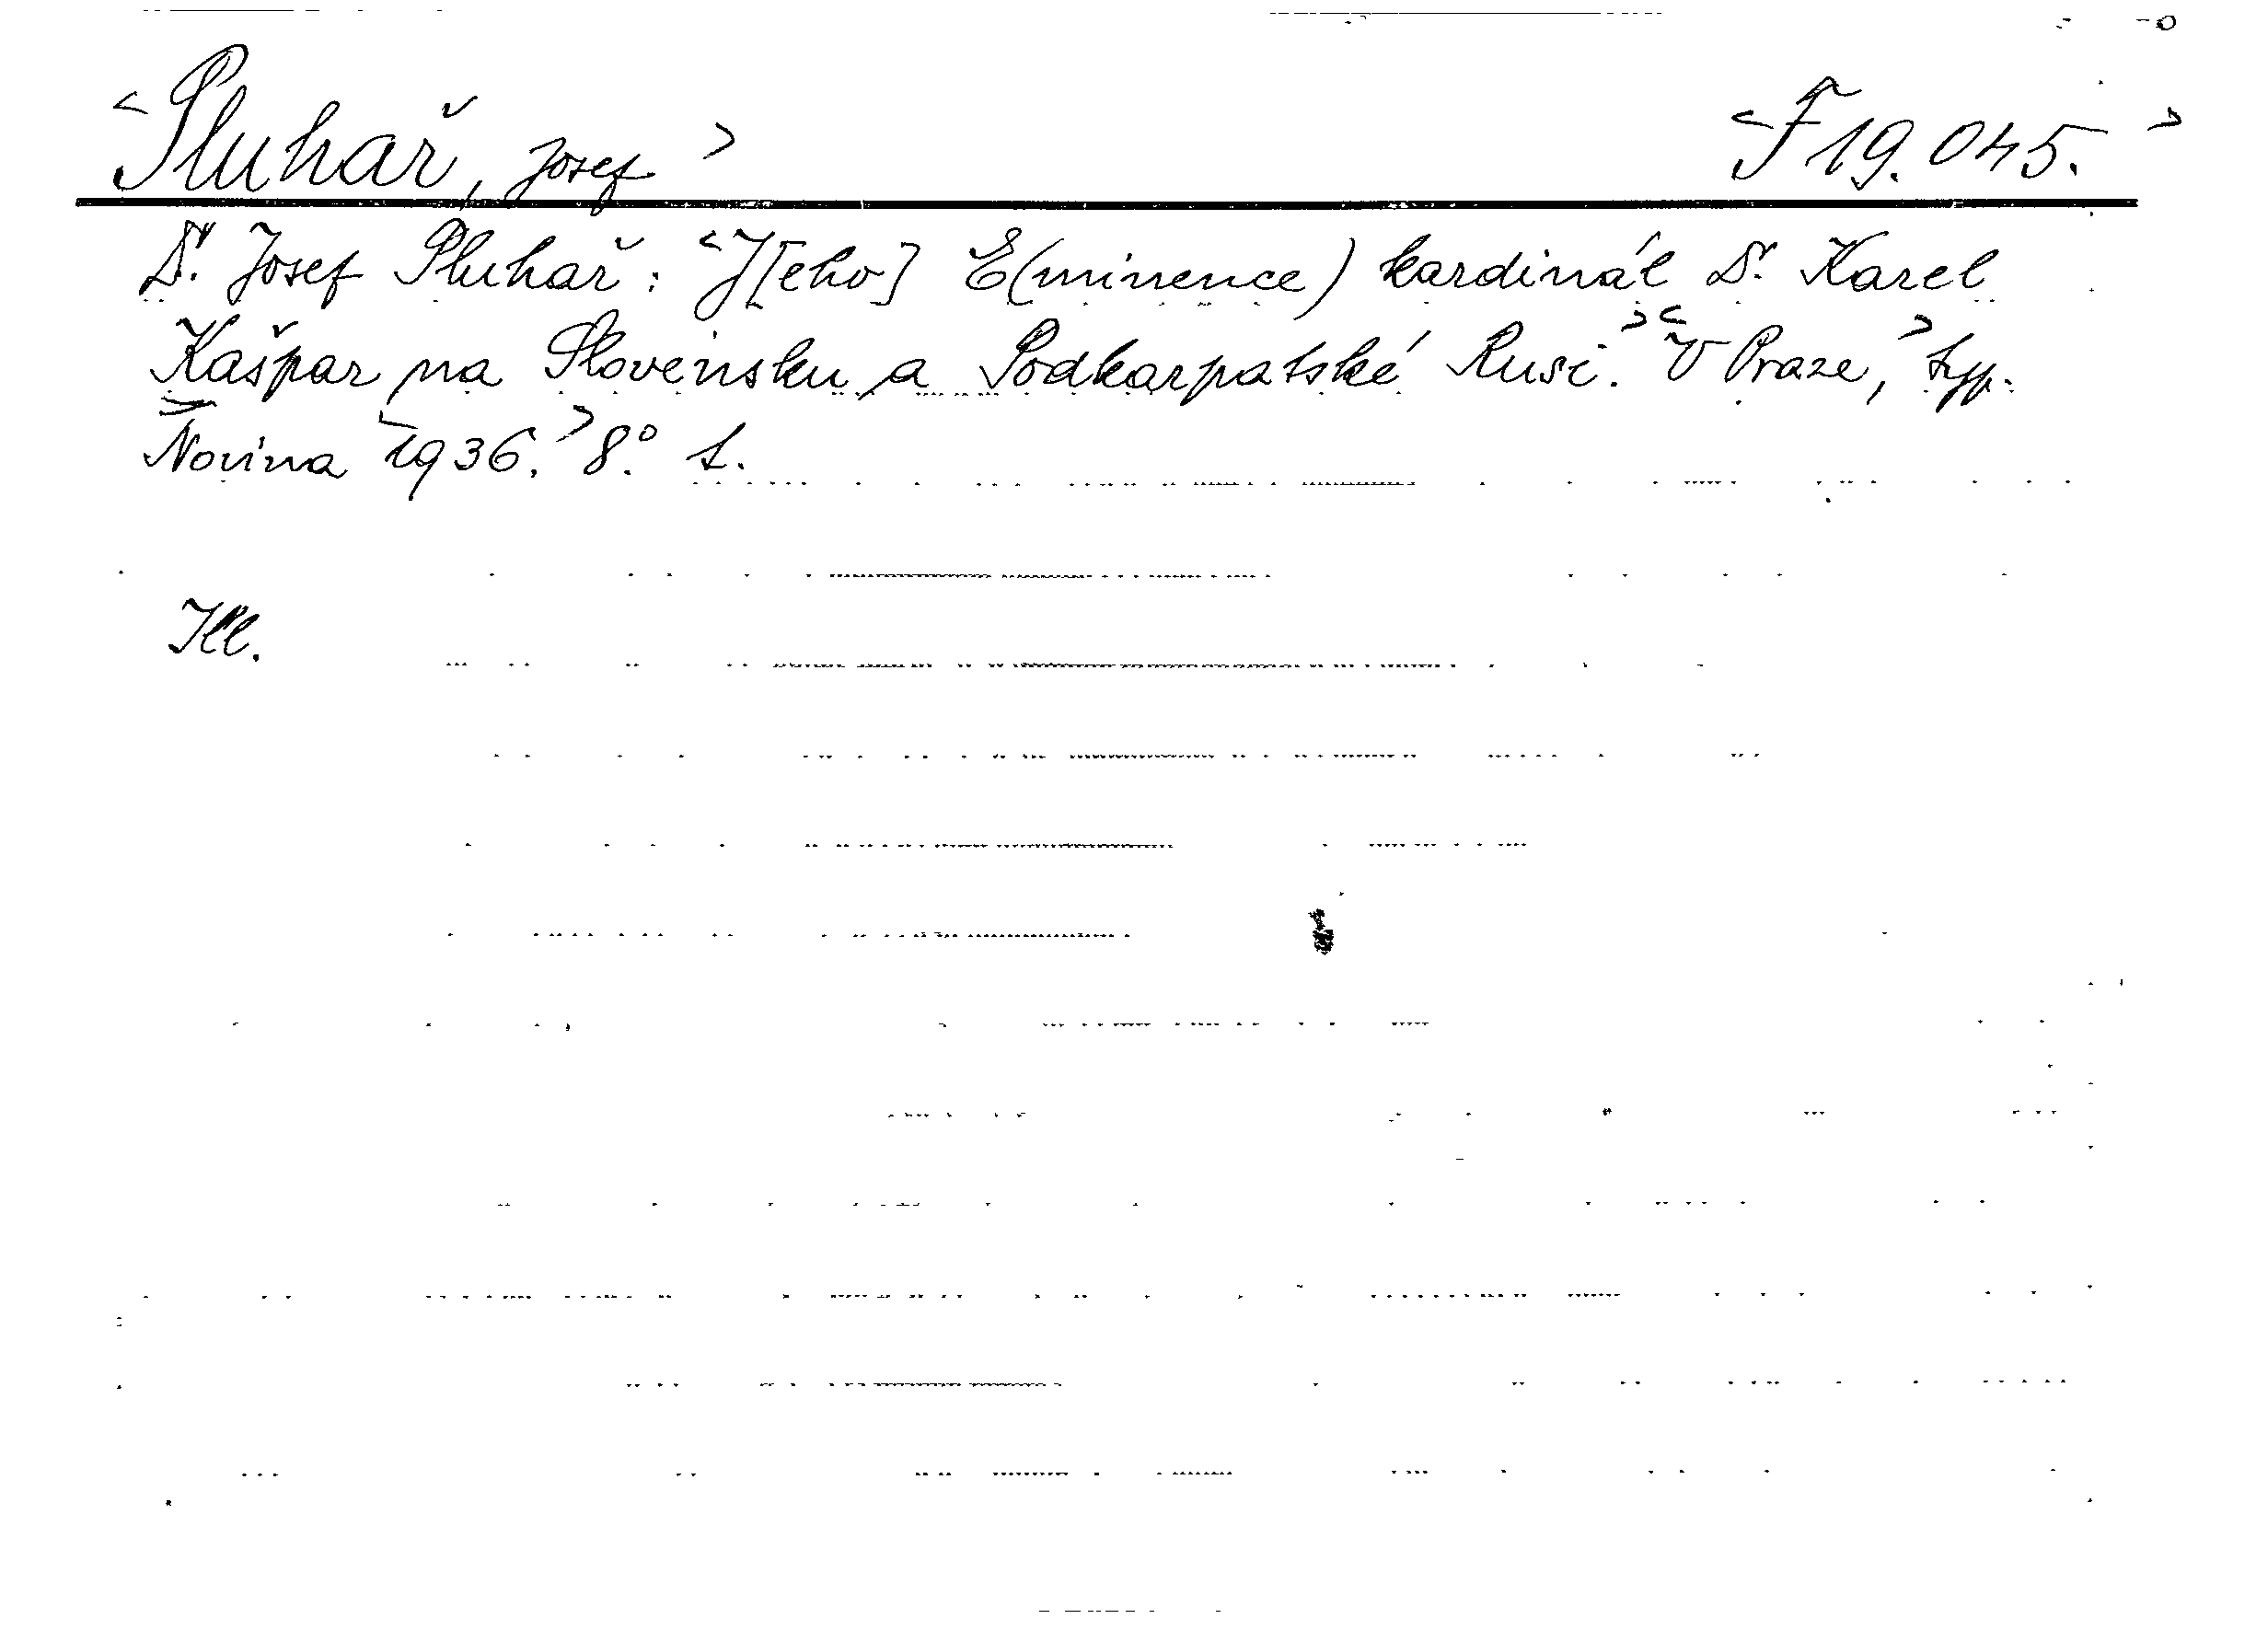 <Pluhař, Josef> <F 19.045.>
Dr. Josef Pluhař: <J[eho] E(minence) kardinál Dr. Karel
Kašpar na Slovensku a Podkarpatské Rusi.> <V Praze,> typ.
Novina <1936.> 8.° 1.
Ill.